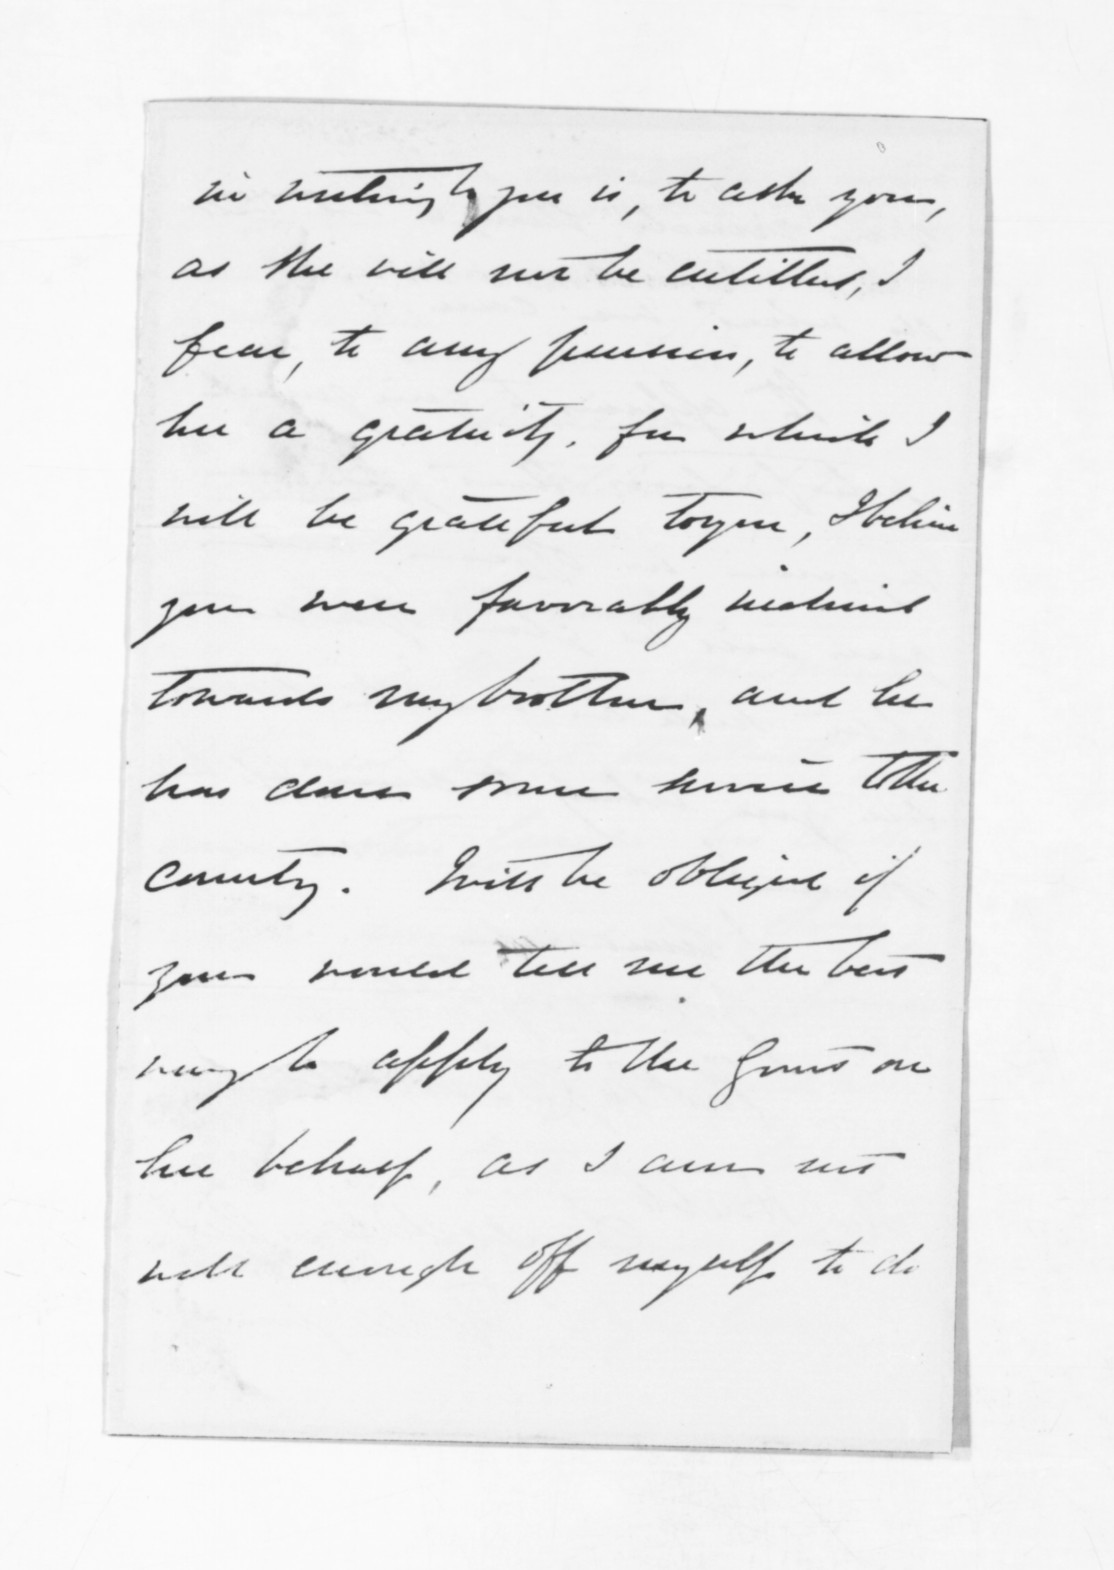 in writing to you is, to ask you,
as she will not be entitled, I
fear, to any pension, to allow
her a gratuity. for which I
will be grateful to you, I believe
you were favorably inclined
towards my brother, and he
has done some service to the
country. I will be obliged if
you would tell me the best
way to apply to the Govt on
her behalf, as I am not
well enough off myself to do